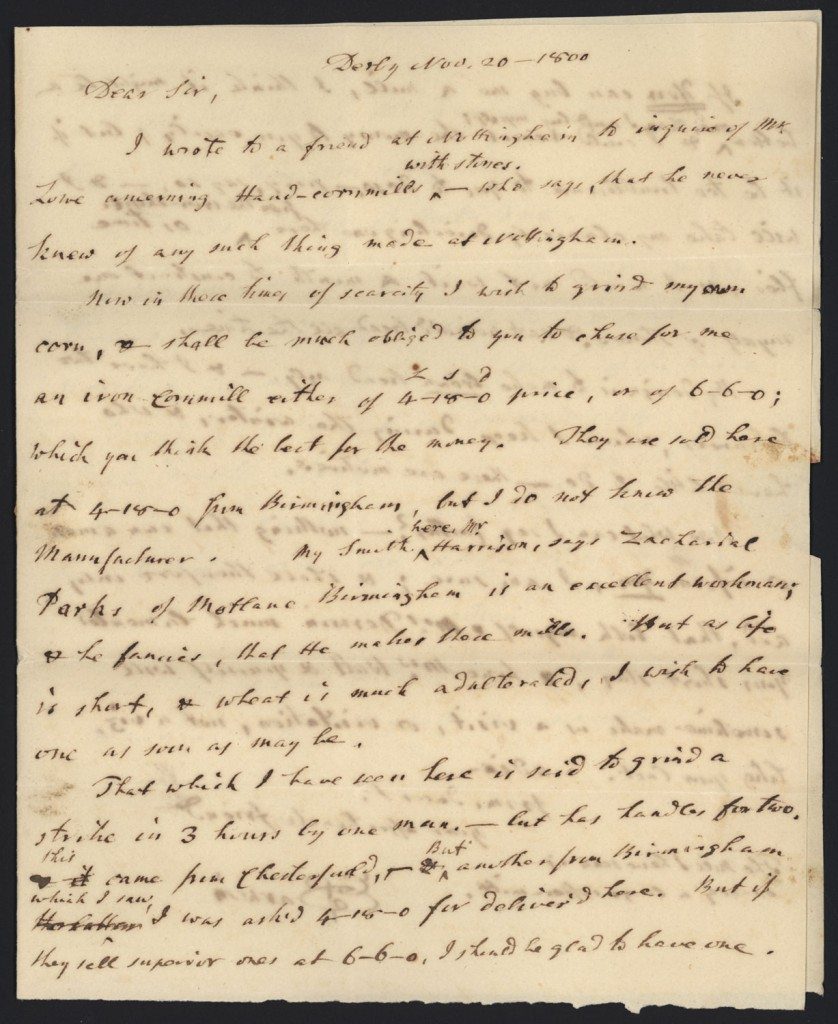 Derby Nov. 20 - 1800
Dear Sir,
I wrote to a friend at Nottingham to inquire of Mr.
with stones.
Lowe concerning Hand-cornmills ^ - who says, that he never
knew of any such thing made at Nottingham.
Now in these times of scarcity I wish to grind my own
corn, & shall be much obliged to you to chuse for me
£ s d
an iron Cornmill either of 4-18-0 price, or of 6-6-0;
which you think the best for the money. They are sold here
at 4-18-0 from Birmingham, but I do not know the
here, Mr
Manufacturer. My Smith ^ Harrison, says Zachariah
Parks of Motlane Birmingham is an excellent workman;
& he fancies, that He makes these mills. But as life
is short, & wheat is much adulterated, I wish to have
one as soon as may be.
That which I have seen here is said to grind a
strike in 3 hours by one man. - but has handles for two.
this But
came from Chesterfield, - ^ another from Birmingham
which I saw,
I was ask'd 4-18-0 for deliver'd here. But if
they sell superior ones at 6-6-0, I should be glad to have one.